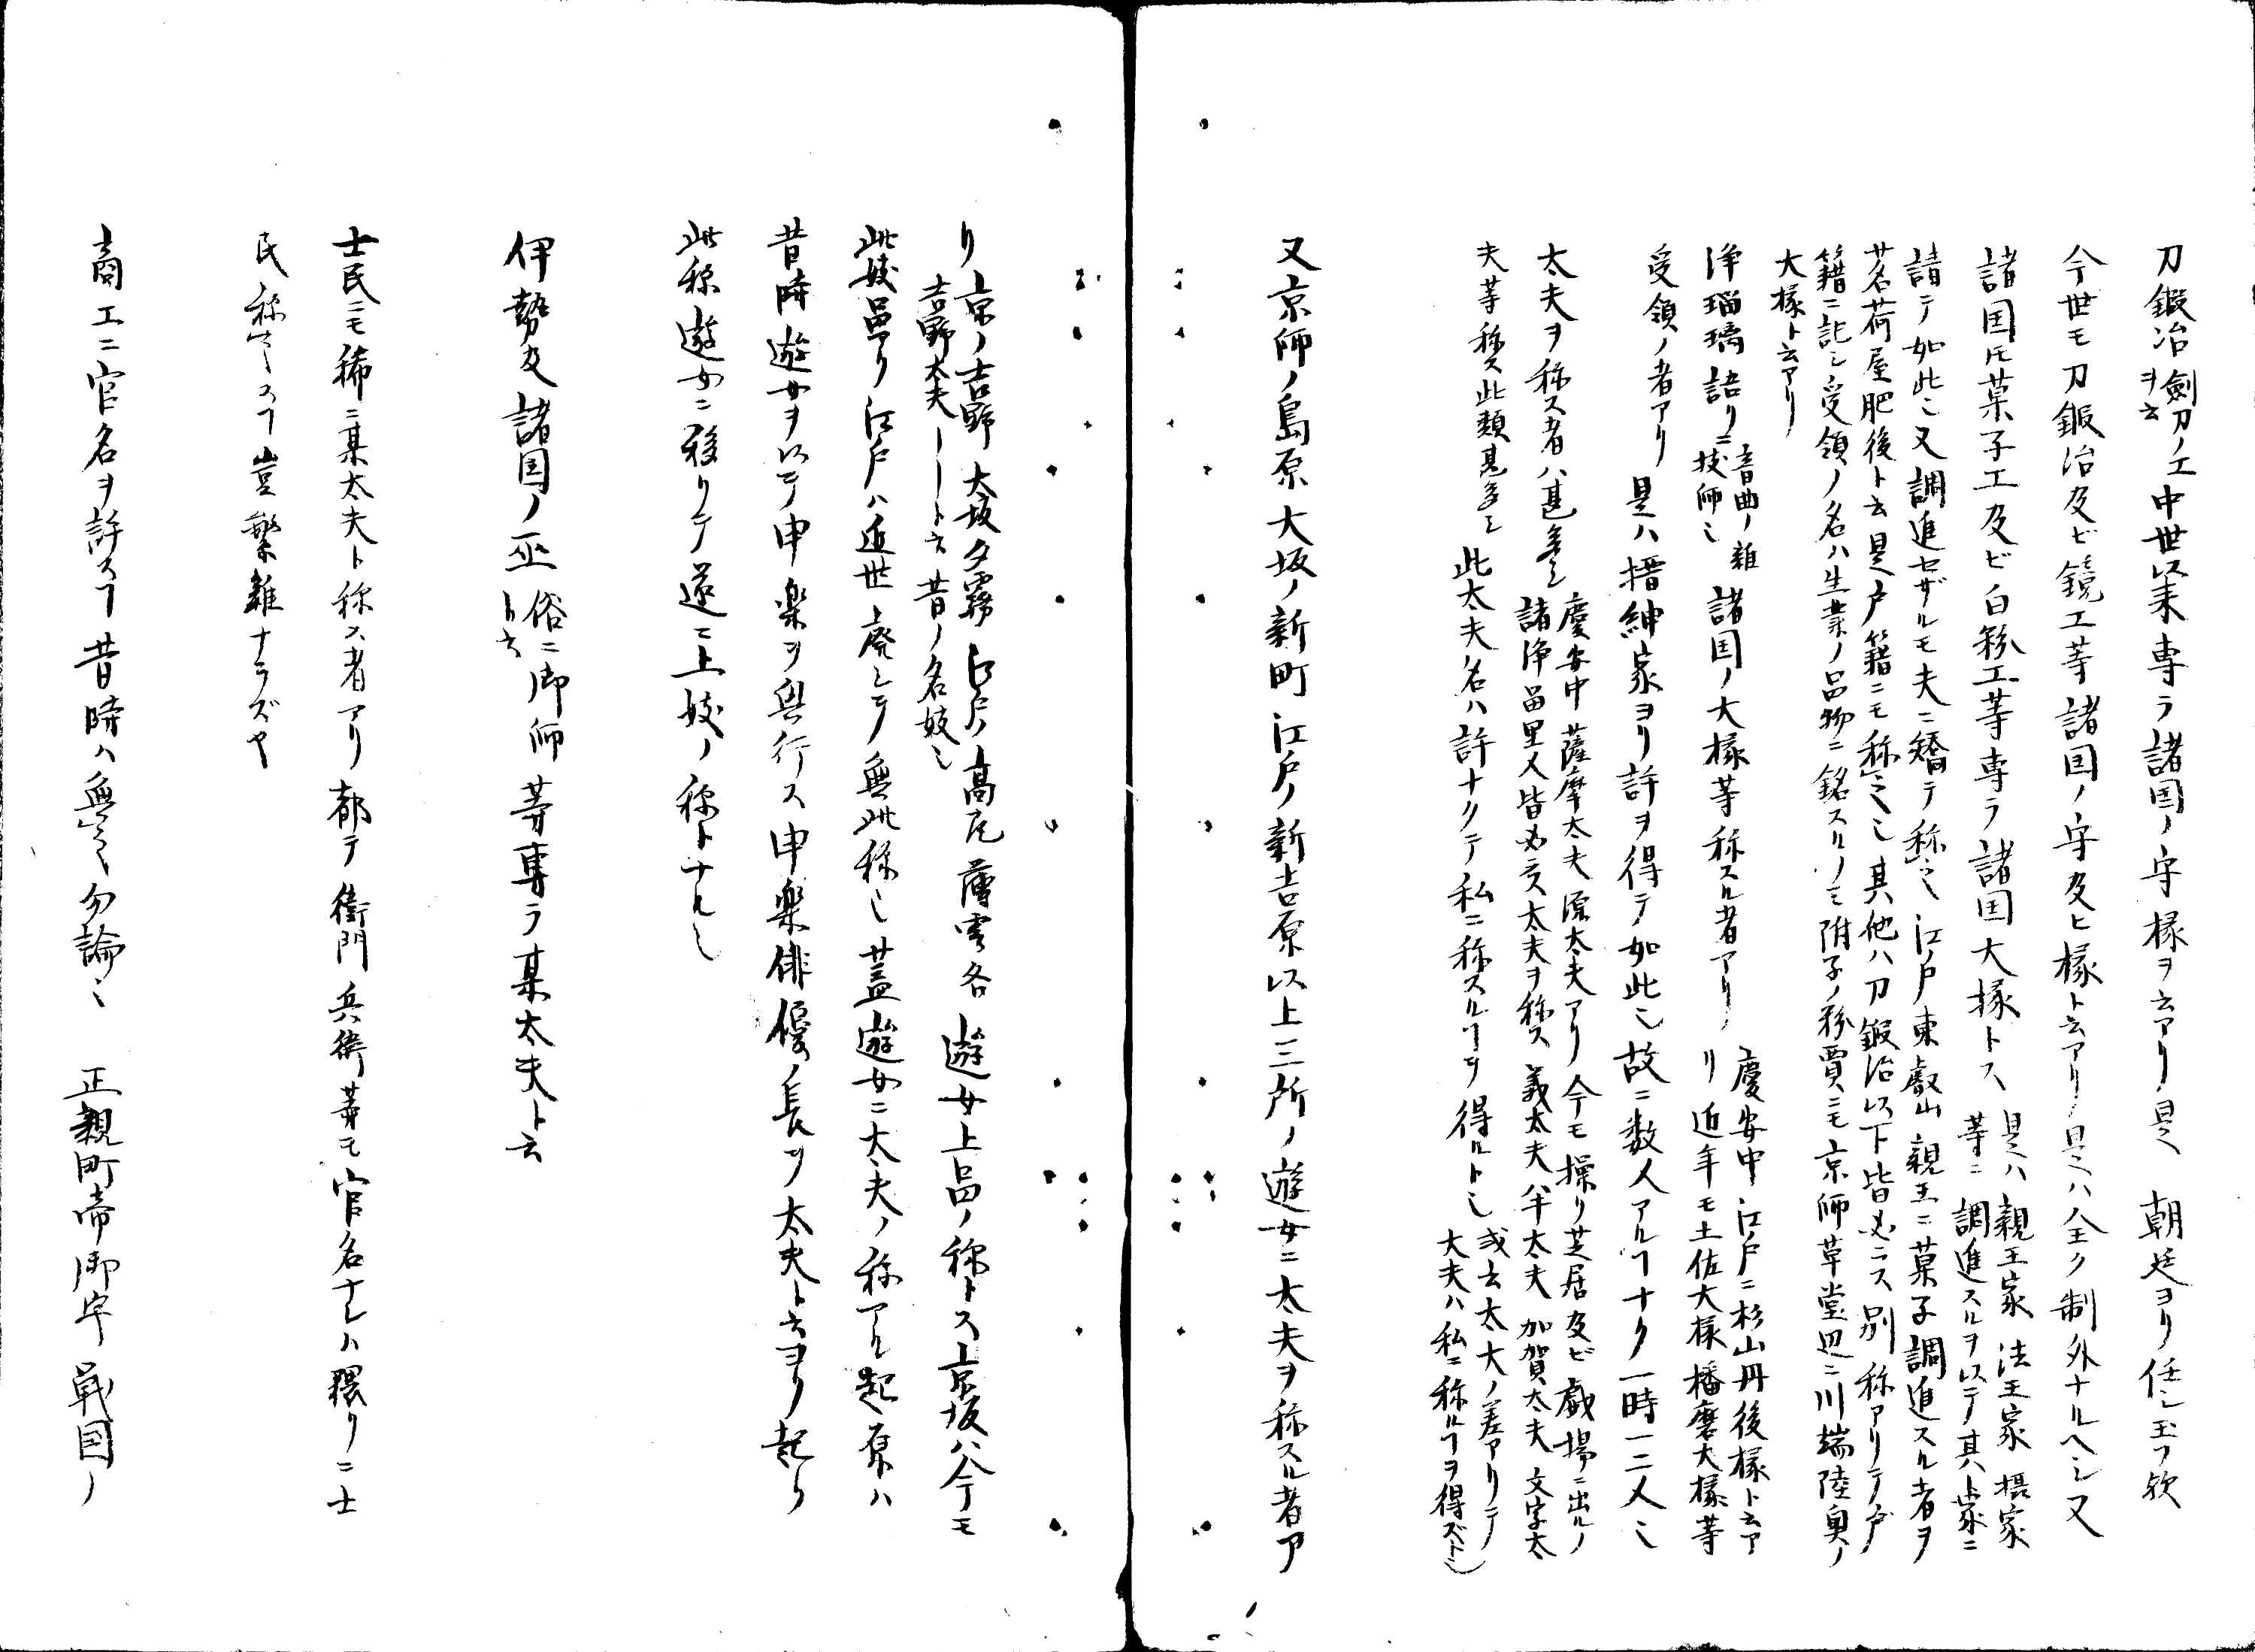 刀鍛冶劍刀ノ工ヲ云中世以来専ラ諸国ノ守掾ヲ云アリ是ハ朝廷ヨリ任シ玉フ歟
今世モ刀鍛冶及ビ鏡工等諸国ノ守及ヒ掾ト云アリ是ハ全ク制外ナルヘシ又
諸国ﾄﾓ菓子工及ビ白粉工等専ラ諸国大掾トス是ハ親王家法王家摂家
等ニ調進スルヲ以テ其家ニ
請テ如此ﾆ又調進セザルモ夫ニ矯テ称之江戸東叡山親王ニ菓子調進スル者ヲ
茗荷屋肥後ト云是戸籍ニモ称之也其他ハ刀鍛冶以下皆必ニス別称アリテ戸
籍ニ記シ受領ノ名ハ生業ノ品物ニ銘スルノミ附子ノ粉賈ニモ京師草堂辺ニ川端陸奥ノ
大掾ト云アリ
浄瑠璃語リ音曲ノ雑
技師也諸国ノ大掾等称スル者アリ慶安中江戸ニ杉山丹後掾ト云ア
リ近年モ土佐大掾播磨大掾等
受領ノ者アリ是ハ搢紳家ヨリ許ヲ得テ如此也故ニ数人アルヿナク一時一二人也
太夫ヲ称ス者ハ甚多シ慶安中薩摩太夫源太夫アリ今モ操リ芝居及ビ戯場ニ出ルノ
諸浄留里人皆必ス太夫ヲ称ス義太夫半太夫加賀太夫文字太
夫等称ス此類甚多シ此太夫名ハ許ナクテ私ニ称スルヿヲ得ルト也或云太大ノ差アリテ
大夫ハ私ニ称ルヿヲ得ズト也
又京師ノ島原大坂ノ新町江戸ノ新吉原以上三所ノ遊女ニ太夫ヲ称スル者ア
リ京ノ吉野大坂夕霧江戸ノ高尾薄雲各
吉野太夫――ト云昔ノ名妓也遊女上品ノ称トス京坂ハ今モ
此妓品アリ江戸ハ近世廃シテ無此称也蓋遊女ニ大夫ノ称アル起原ハ
昔時遊女ヲ以テ申楽ヲ興行ス申楽俳優ノ長ヲ太夫ト云ヨリ起リ
此称遊女ニ移リテ遂ニ上妓ノ称トナル也
伊勢及諸国ノ巫俗ニ御師
ト云等専ラ某太夫ト云
士民ニモ稀ニ某太夫ト称ス者アリ都テ衛門兵衛等モ官名ナレハ猥リニ士
民称之スヿ豈繁雑ナラズヤ
商工ニ官名ヲ許スヿ昔時ハ無之勿論也正親町帝御宇戦国ノ